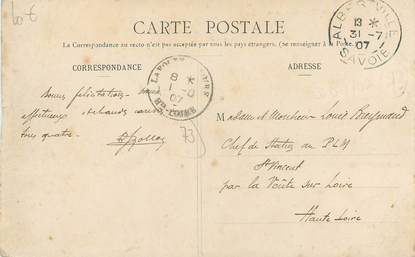 60 €
CARTE POSTALE
La Correspondance au recto n'est pas acceptée par tous les pays étrangers. (Se renseigner à la Poste.)
CORRESPONDANCE
ADRESSE
ALBERTVILLE
13 *
31 - 7
07
SAVOIE
8
07
LOIRE
Bonnes félicitations
affectueux
tous quatre.
73
Madame et Monsieur Louis Raymond
Chef de Station au PLM
St Vincent
par la Voûte sur Loire
Haute Loire